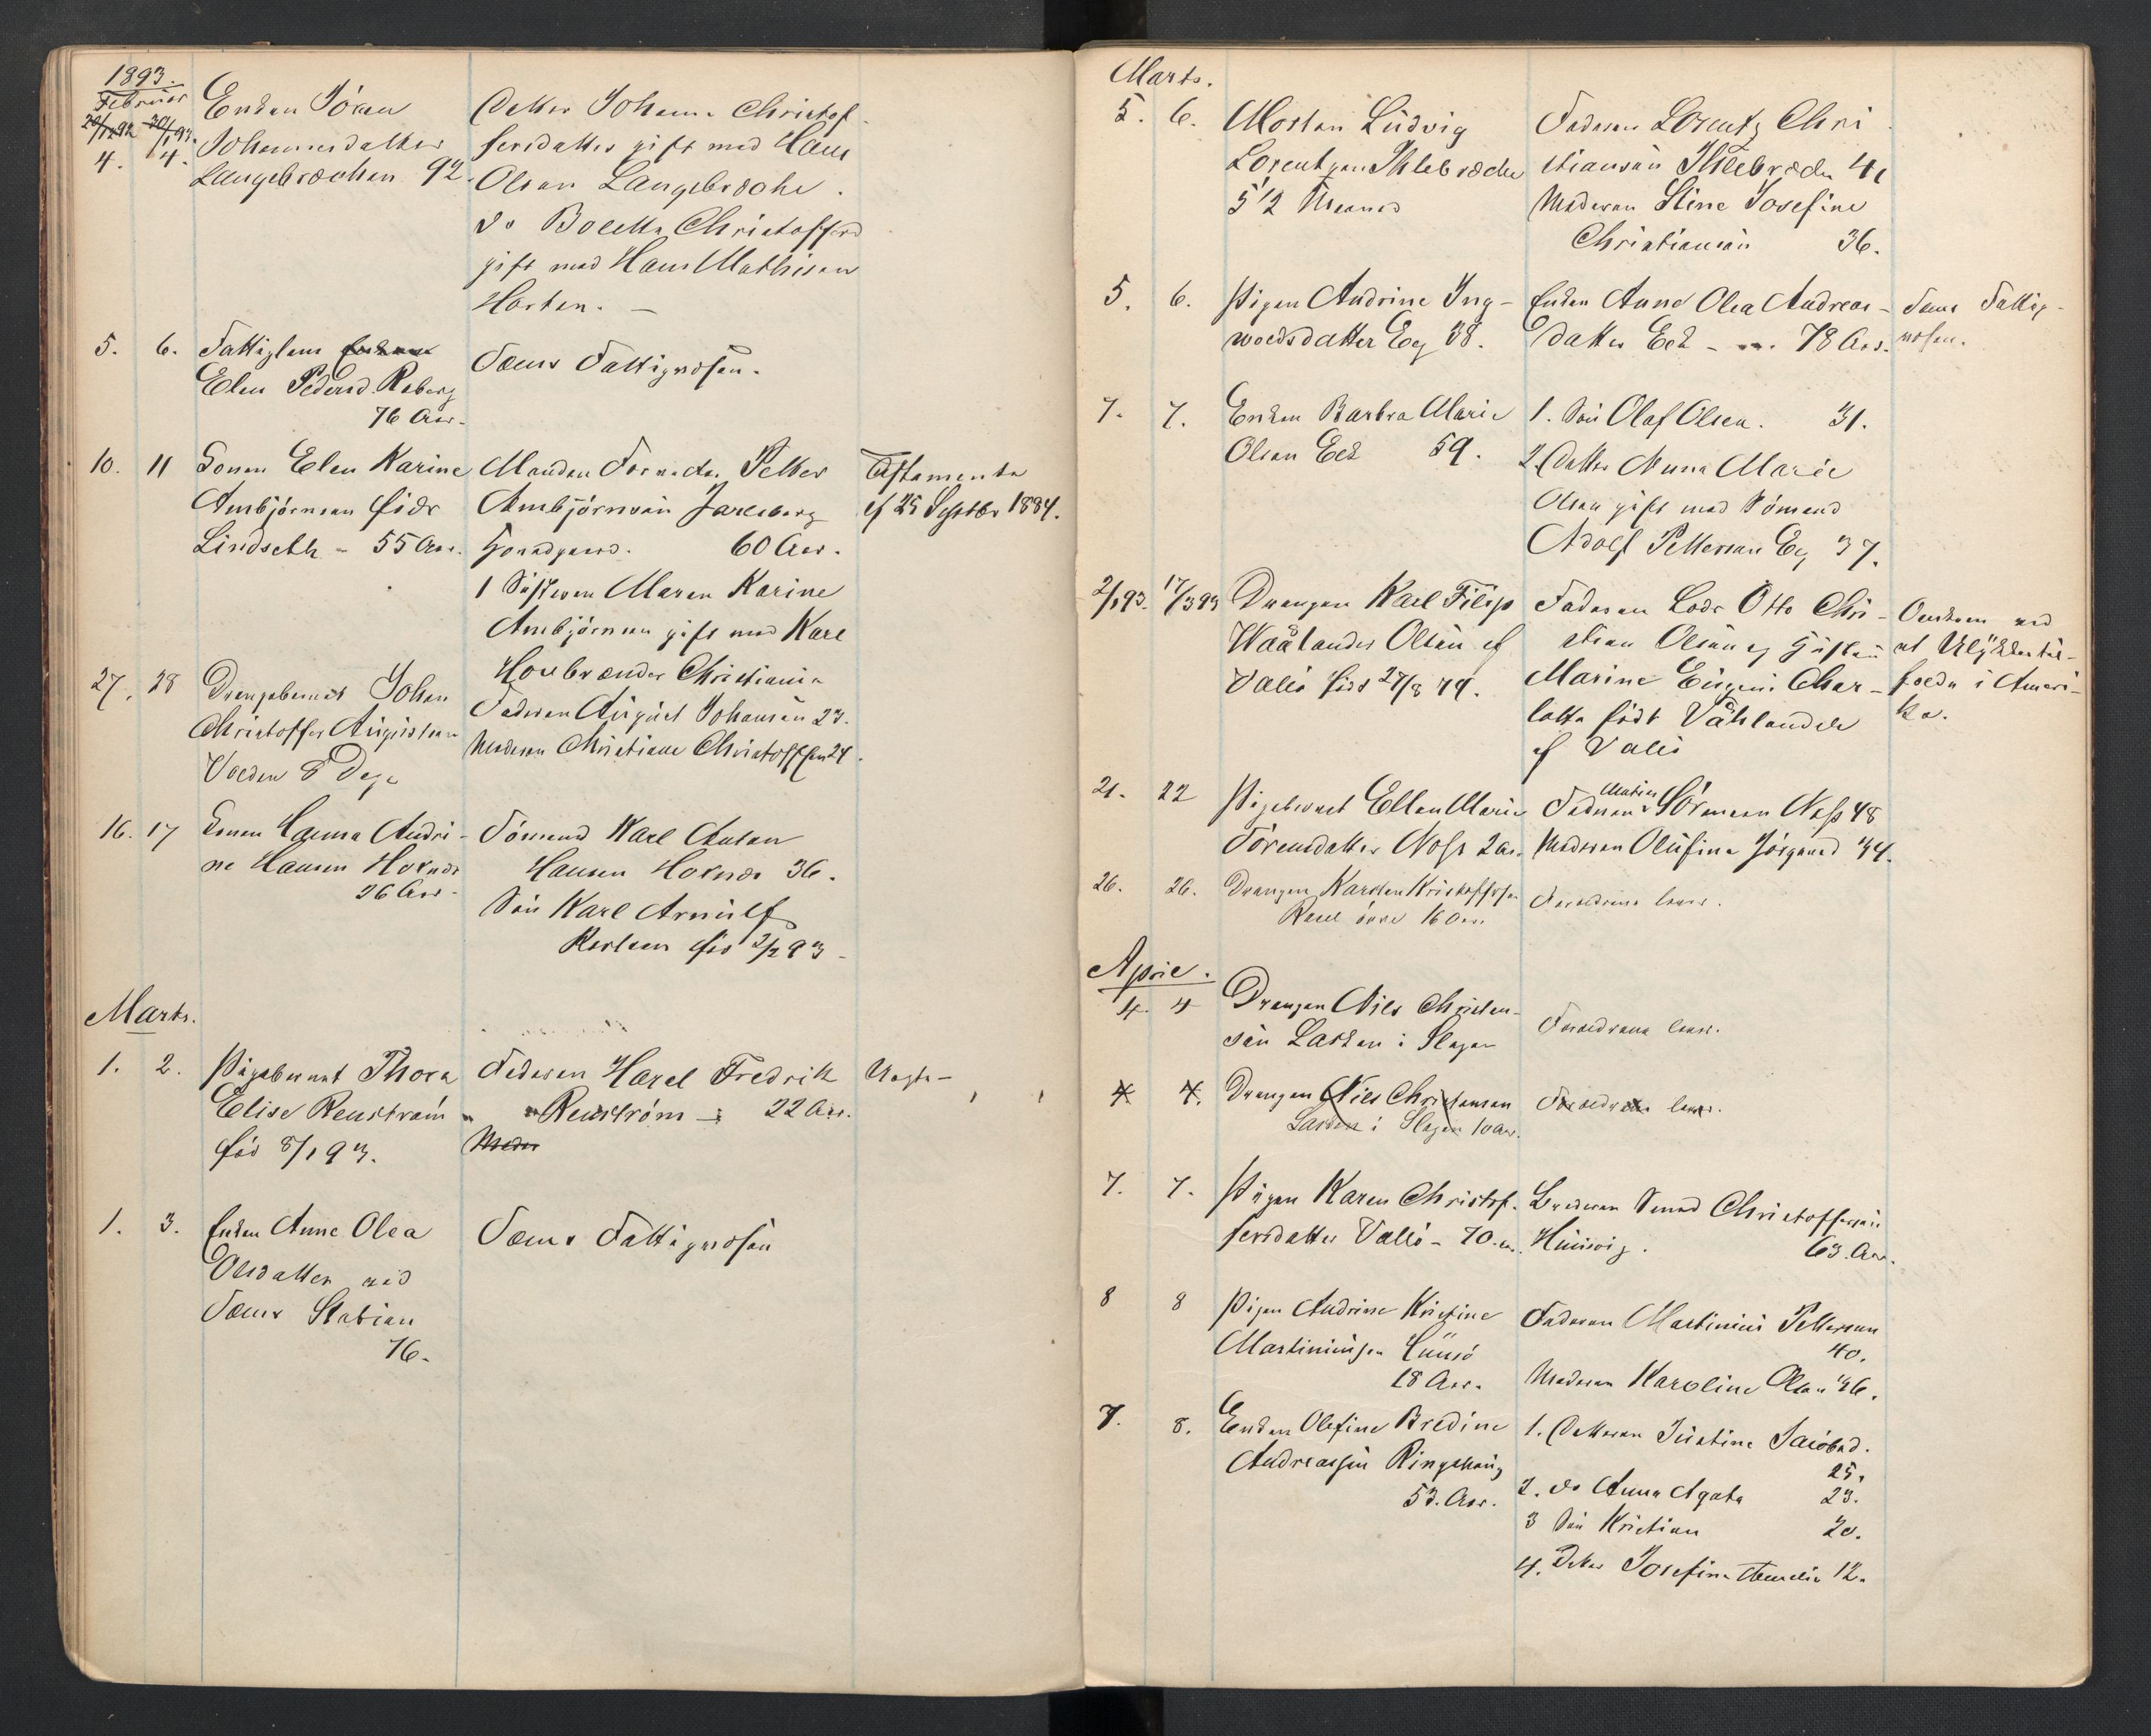 1893.
Februar
20/12 92 30/1 93.
4. 4.
Enken Jóran
Johannesdatter
Langebræcken 92.
Datter Johanne Christof
fersdatter gift med Hans
Olsen Langebræcke.
do Bolette Christoffers
gift med Hans Mathisen
Horten. —
5. 6. Fattiglem
Elen Pedersd. Raberg
76 Aar.
Sæms Fattigvæsen.
10. 11 Konen Elen Karine
Ambjörnsen født
Lindseth - 55 Aar.
Manden Petter
Ambjörnsen Jarlsberg
60 Aar.
1 Søsteren Maren Karine
Ambjörnsen gift med Karl
Christiania
Testamente
af 25 Septbr 1884.
27. 28 Drengebarnet Johan
Christoffer Augustsen
Volden 8 Dage
Faderen August Johansen 23.
Moderen Christiane Christoffsen 24.
16. 17 Konen Hanna Andri-
ne Hansen
26 Aar.
Sømand Karl Anton
Hansen 36.
Søn Karl Arnulf
Karlsen fød 2/2 93
Marts.
1. 2. Pigebarnet Thora
Elise Renström
fød 8/1 93.
Faderen Harel Fredrik
Renström - 22 Aar.
Moder
Ungte-
1. 3. Enken Anne Olea
Olsdatter ved
Sæms Station
76.
Sæms Fattigvæsen
Marts.
5. 6. Morten Ludvig
Lorentzen Ihlebrække
5 1/2 Maaned
Faderen Lorentz Chri
stiansen Ihlebrække 41
Moderen Stine Josefine
Christiansen 36.
5. 6. Pigen Andrine Ing-
woldsdatter Eeg 38.
Enken Anne Olea Andreas-
datter Eek - 78 Aar.
Sæms Fattig-
væsen.
7. 7. Enken Barbra Marie
Olsen Eek 59.
1. Søn Olaf Olsen. 31.
2. Datter Anna Marie
Olsen gift med Sømand
Adolf Pettersen Eeg 37.
2/1 93. 17/3 93 Drengen Karl Filip
Waålander Olsen af
Vallö født 27/8 79.
Faderen Lods Otto Chri-
stian Olsen og Hustru
Marine Eugenie Char-
lotte født Våhlander
af Vallö
Omkom ved
et Ulykkestil-
fælde i Ameri-
ka.
21. 22 Pigebarnet Ellen Marie
Sörensdatter Næss 2 Aar.
Faderen Martin Sörensen Næss 48
Moderen Olufine Jörgens 44.
26. 26. Drengen Karsten Kristoffersen
Rael övre 16 Aar.
Foreldrene lever.
April.
4. 4 Drengen Nils Christen-
sen Lasken i Slagen
Foreldrene lever.
4. 4. Drengen Nils Christensen
Lasken i Slagen 10 Aar.
Foreldrene lever.
7. 7. Pigen Karen Christof-
fersdatter Vallö - 70 Aar.
Broderen Christoffersen
Husvig. 63 Aar.
8 8 Pigen Andrine Kristine
Martiniusen Huusö
18 Aar.
Faderen Martinius Pettersen
40.
Moderen Karoline Olsen 46.
7. 8. Enken Olefine Bredine
Andreassen Ringshaug
53. Aar.
1. Datteren Justine Jacobsd.
25.
2. do Anna Agata 23.
3 Søn Kristian 20.
4. Datter Josefine Amelie 12.